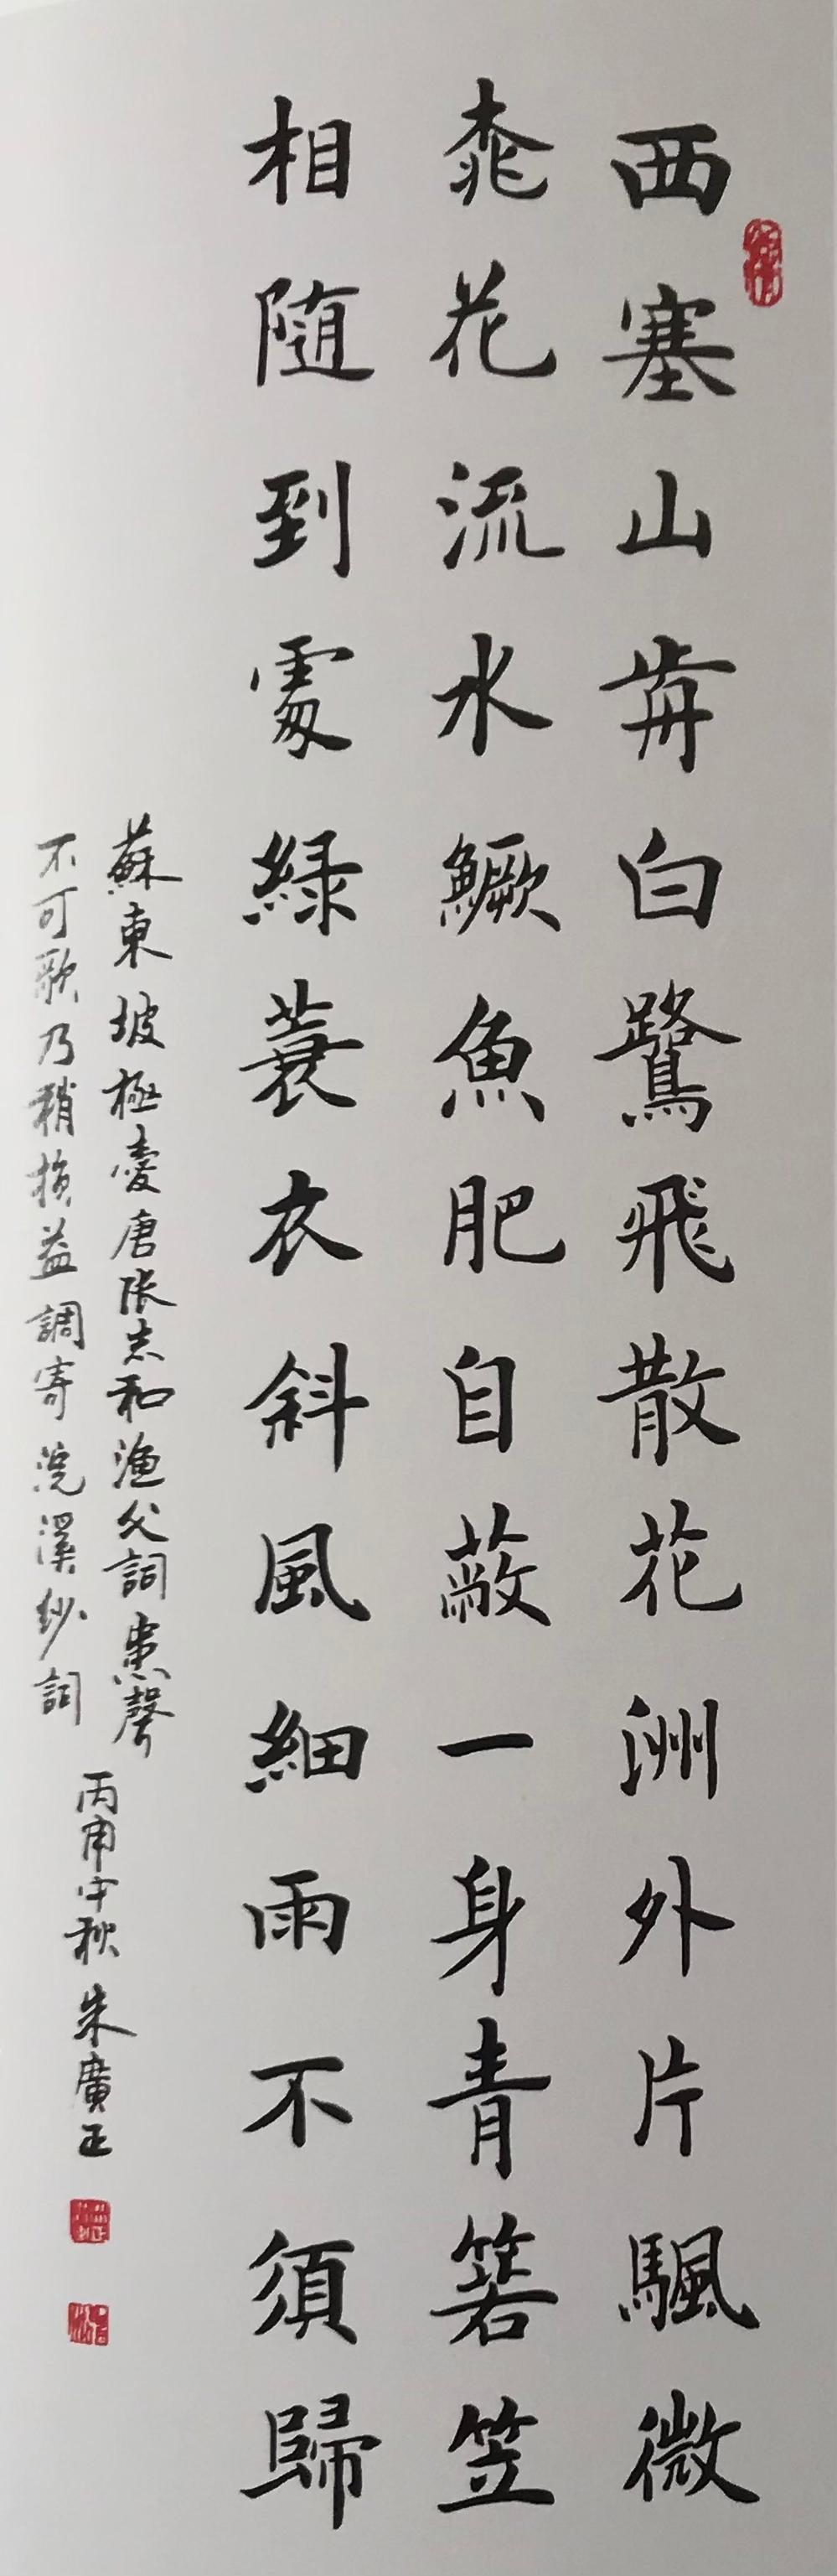 西塞山歬白鷺飛散花洲外片颿微
桃花流水鱖魚肥自蔽一身青箬笠
相隨到處綠蓑衣斜風細雨不須歸
蘇東坡極愛唐張志和漁父詞患聲
不可歌乃稍損益調寄浣溪紗詞
丙申中秋 朱廣正